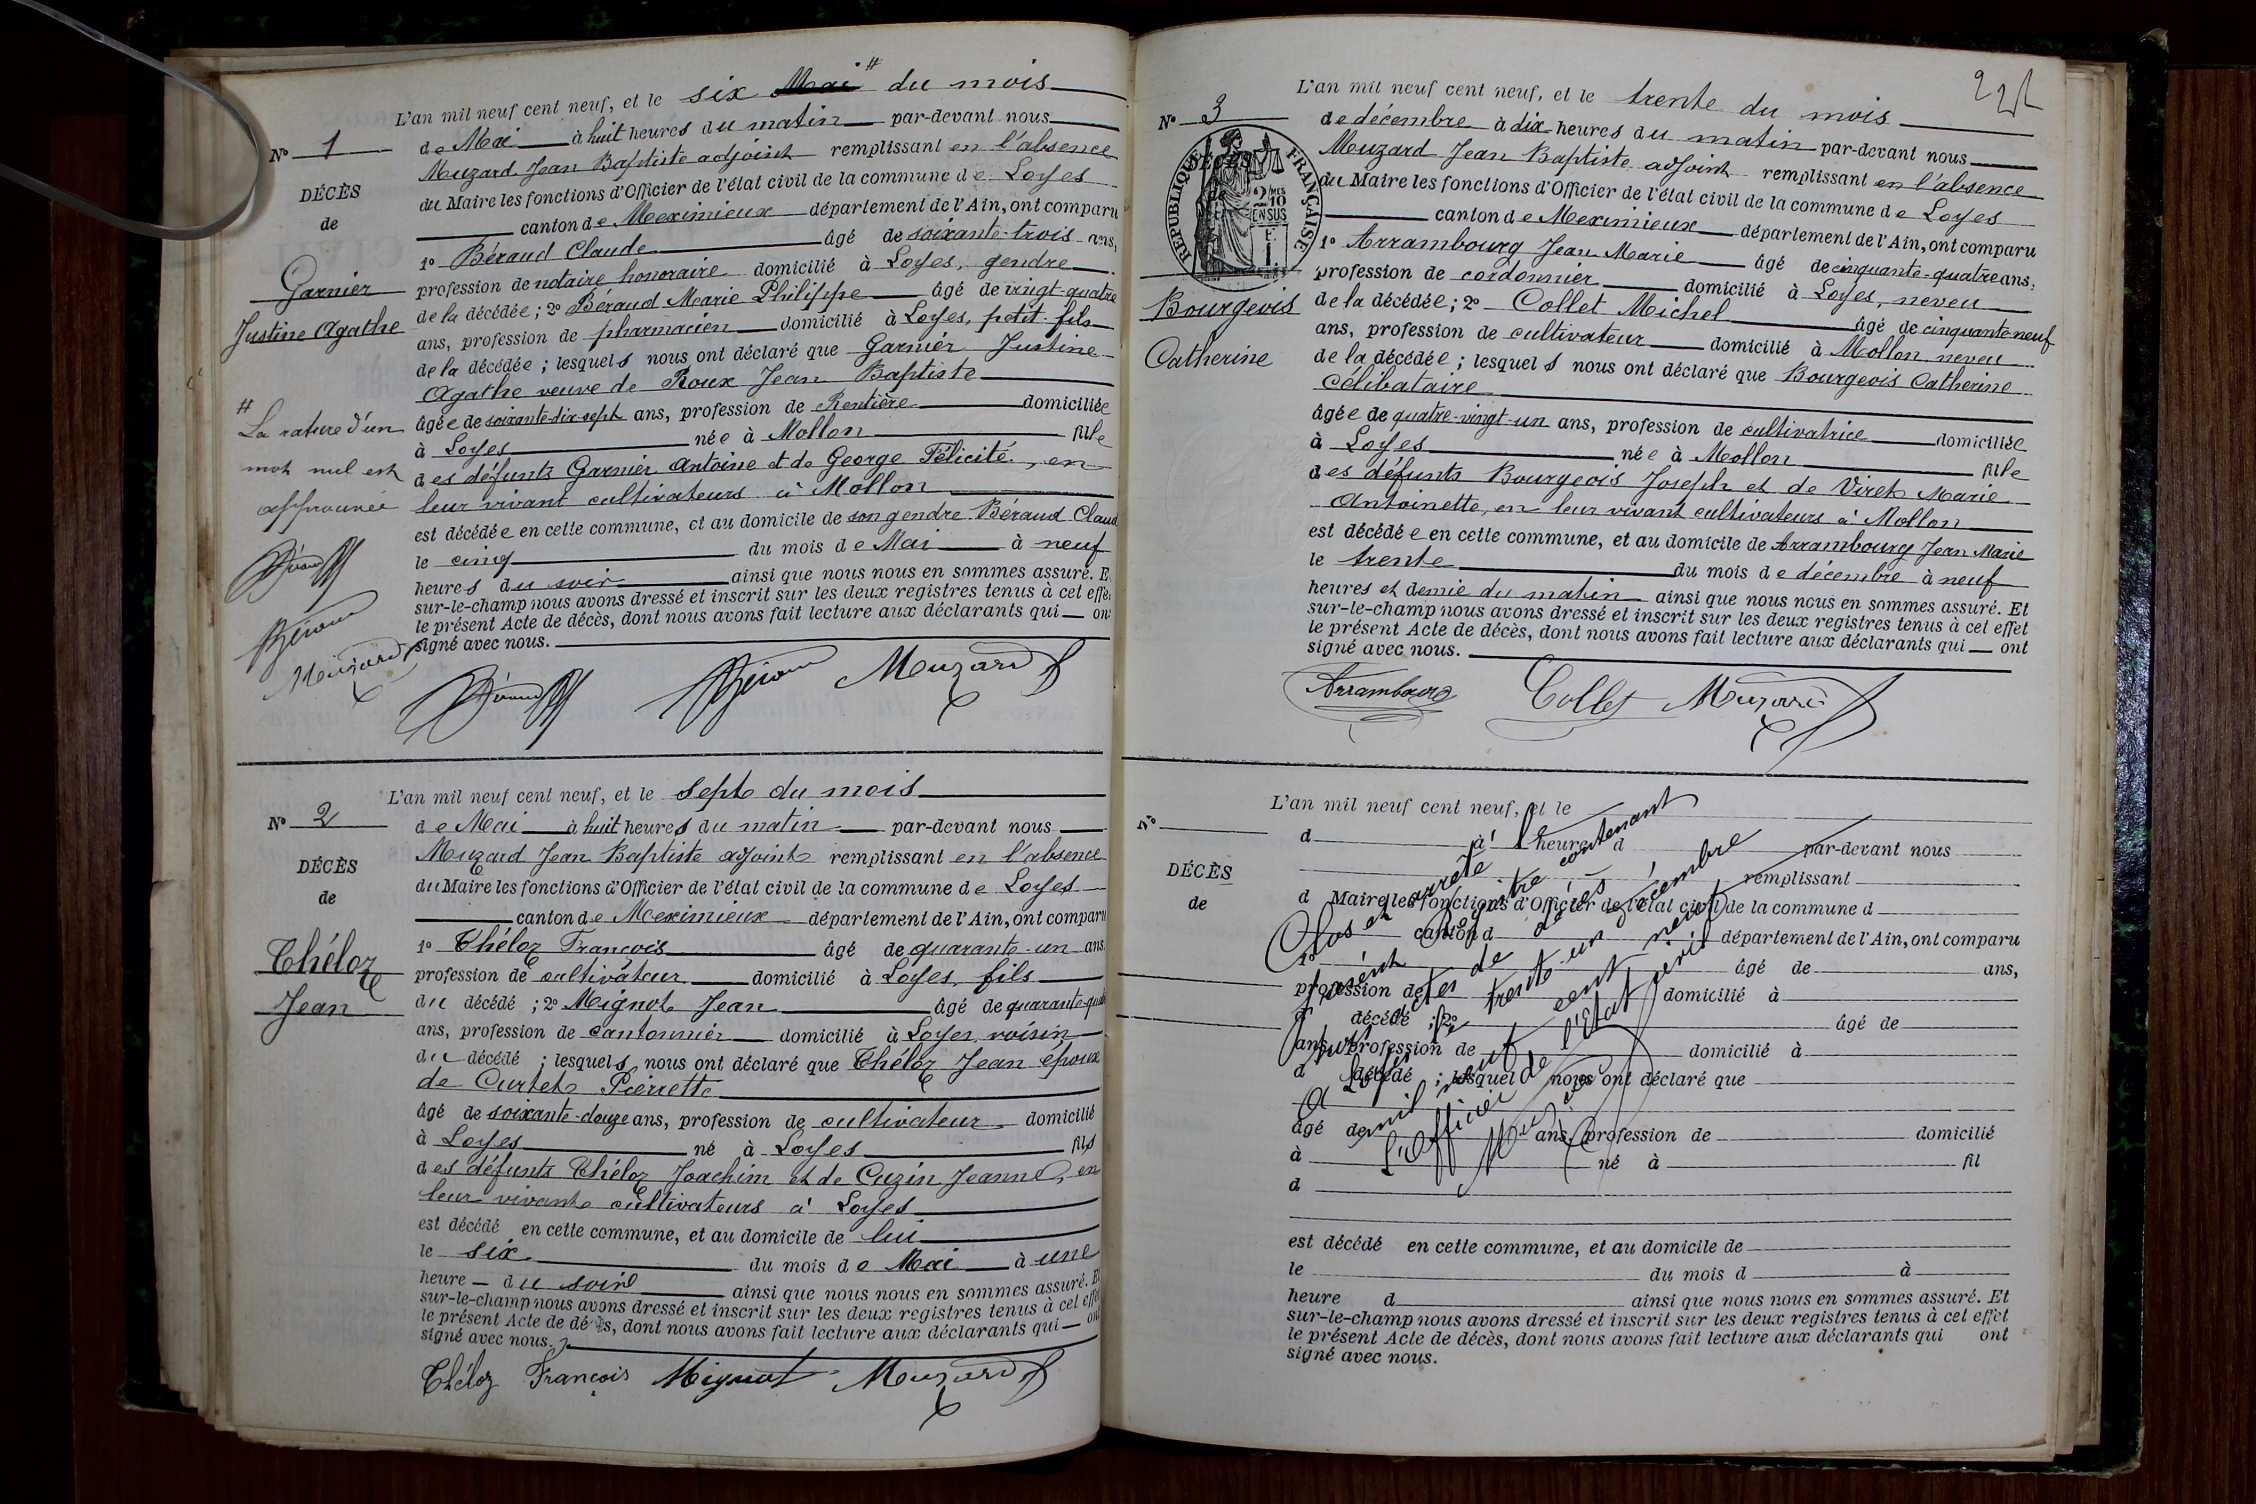 L'an mil neuf cent neuf, et le six Mai # du mois
Nº 1
de Mai à huit heures du matin par-devant nous
Muzard Jean Baptiste adjoint remplissant en l'absence
DÉCÈS
du Maire les fonctions d'Officier de l'état civil de la commune de Loyes
de
canton de Meximieux département de l'Ain, ont comparu
1º Béraud Claude âgé de soixante-trois ans,
Garnier
profession de notaire honoraire domicilié à Loyes, gendre
Justine Agathe
de la décédée ; 2º Béraud Marie Philippe âgé de vingt-quatre
ans, profession de pharmacien domicilié à Loyes, petit-fils
de la décédée ; lesquels nous ont déclaré que Garnier Justine
Agathe veuve de Roux Jean Baptiste
#
La rature d'un
mot nul est
approuvée
âgée de soixante-dix-sept ans, profession de Rentière domiciliée
à Loyes née à Mollon fille
des défunts Garnier Antoine et de George Félicité, en
leur vivant cultivateurs à Mollon
est décédée en cette commune, et au domicile de son gendre Béraud Claud
le cinq du mois de Mai à neuf
heures du soir ainsi que nous nous en sommes assuré. E
sur-le-champ nous avons dressé et inscrit sur les deux registres tenus à cet effe
le présent Acte de décès, dont nous avons fait lecture aux déclarants qui on
signé avec nous.
Béraud
Béraud
Muzard
Béraud Béraud Muzard
L'an mil neuf cent neuf, et le sept du mois
Nº 2
de Mai à huit heures du matin par-devant nous
Muzard Jean Baptiste adjoint remplissant en l'absence
DÉCÈS
du Maire les fonctions d'Officier de l'état civil de la commune de Loyes
de
canton de Meximieux département de l'Ain, ont comparu
Théloz
Jean
1º Théloz François âgé de quarante-un ans
profession de cultivateur domicilié à Loyes, fils
du décédé ; 2º Mignot Jean âgé de quarante-quat
ans, profession de cantonnier domicilié à Loyes, voisin
du décédé ; lesquels nous ont déclaré que Théloz Jean époux
de Curtet Pierrette
âgé de soixante-douze ans, profession de cultivateur domicilié
à Loyes né à Loyes fils
des défunts Théloz Joachim et de Cuzin Jeanne, en
leur vivant cultivateurs à Loyes
est décédé en cette commune, et au domicile de lui
le six du mois de Mai à une
heure du soir ainsi que nous nous en sommes assuré. Et
sur-le-champ nous avons dressé et inscrit sur les deux registres tenus à cet effet
le présent Acte de décès, dont nous avons fait lecture aux déclarants qui ont
signé avec nous.
Théloz François Mignot Muzard
L'an mil neuf cent neuf, et le trente du mois
Nº 3
de décembre à dix heures du matin par-devant nous
Muzard Jean Baptiste adjoint remplissant en l'absence
du Maire les fonctions d'Officier de l'état civil de la commune de Loyes
canton de Meximieux département de l'Ain, ont comparu
RÉPUBLIQUE FRANÇAISE
2/10
EN SUS
1º Arrambourg Jean Marie âgé de cinquante-quatre ans,
profession de cordonnier domicilié à Loyes, neveu
Bourgeois
Catherine
de la décédée ; 2º Collet Michel âgé de cinquante neuf
ans, profession de cultivateur domicilié à Mollon neveu
de la décédée ; lesquels nous ont déclaré que Bourgeois Catherine
célibataire
âgée de quatre-vingt-un ans, profession de cultivatrice domiciliée
à Loyes née à Mollon fille
des défunts Bourgeois Joseph et de Viret Marie
Antoinette, en leur vivant cultivateurs à Mollon
est décédée en cette commune, et au domicile de Arrambourg Jean Marie
le trente du mois de décembre à neuf
heures et demie du matin ainsi que nous nous en sommes assuré. Et
sur-le-champ nous avons dressé et inscrit sur les deux registres tenus à cet effet
le présent Acte de décès, dont nous avons fait lecture aux déclarants qui ont
signé avec nous.
Arrambourg Collet Muzard
L'an mil neuf cent neuf, et le
Nº
d à heure d par-devant nous
remplissant
DÉCÈS
d Maire les fonctions d'Officier de l'état civil de la commune d
de
canton d département de l'Ain, ont comparu
1º âgé de ans,
profession de domicilié à
d décédé ; 2º âgé de
ans, profession de domicilié à
d décédé ; lesquel nous ont déclaré que
âgé de ans, profession de domicilié
à né à fil
d
est décédé en cette commune, et au domicile de
le du mois d à
heure d ainsi que nous nous en sommes assuré. Et
sur-le-champ nous avons dressé et inscrit sur les deux registres tenus à cet effet
le présent Acte de décès, dont nous avons fait lecture aux déclarants qui ont
signé avec nous.
Clos et arrêté le
présent registre contenant
actes de décès
A Loyes le trente-un décembre
mil neuf cent neuf
L'Officier de l'Etat civil
Muzard